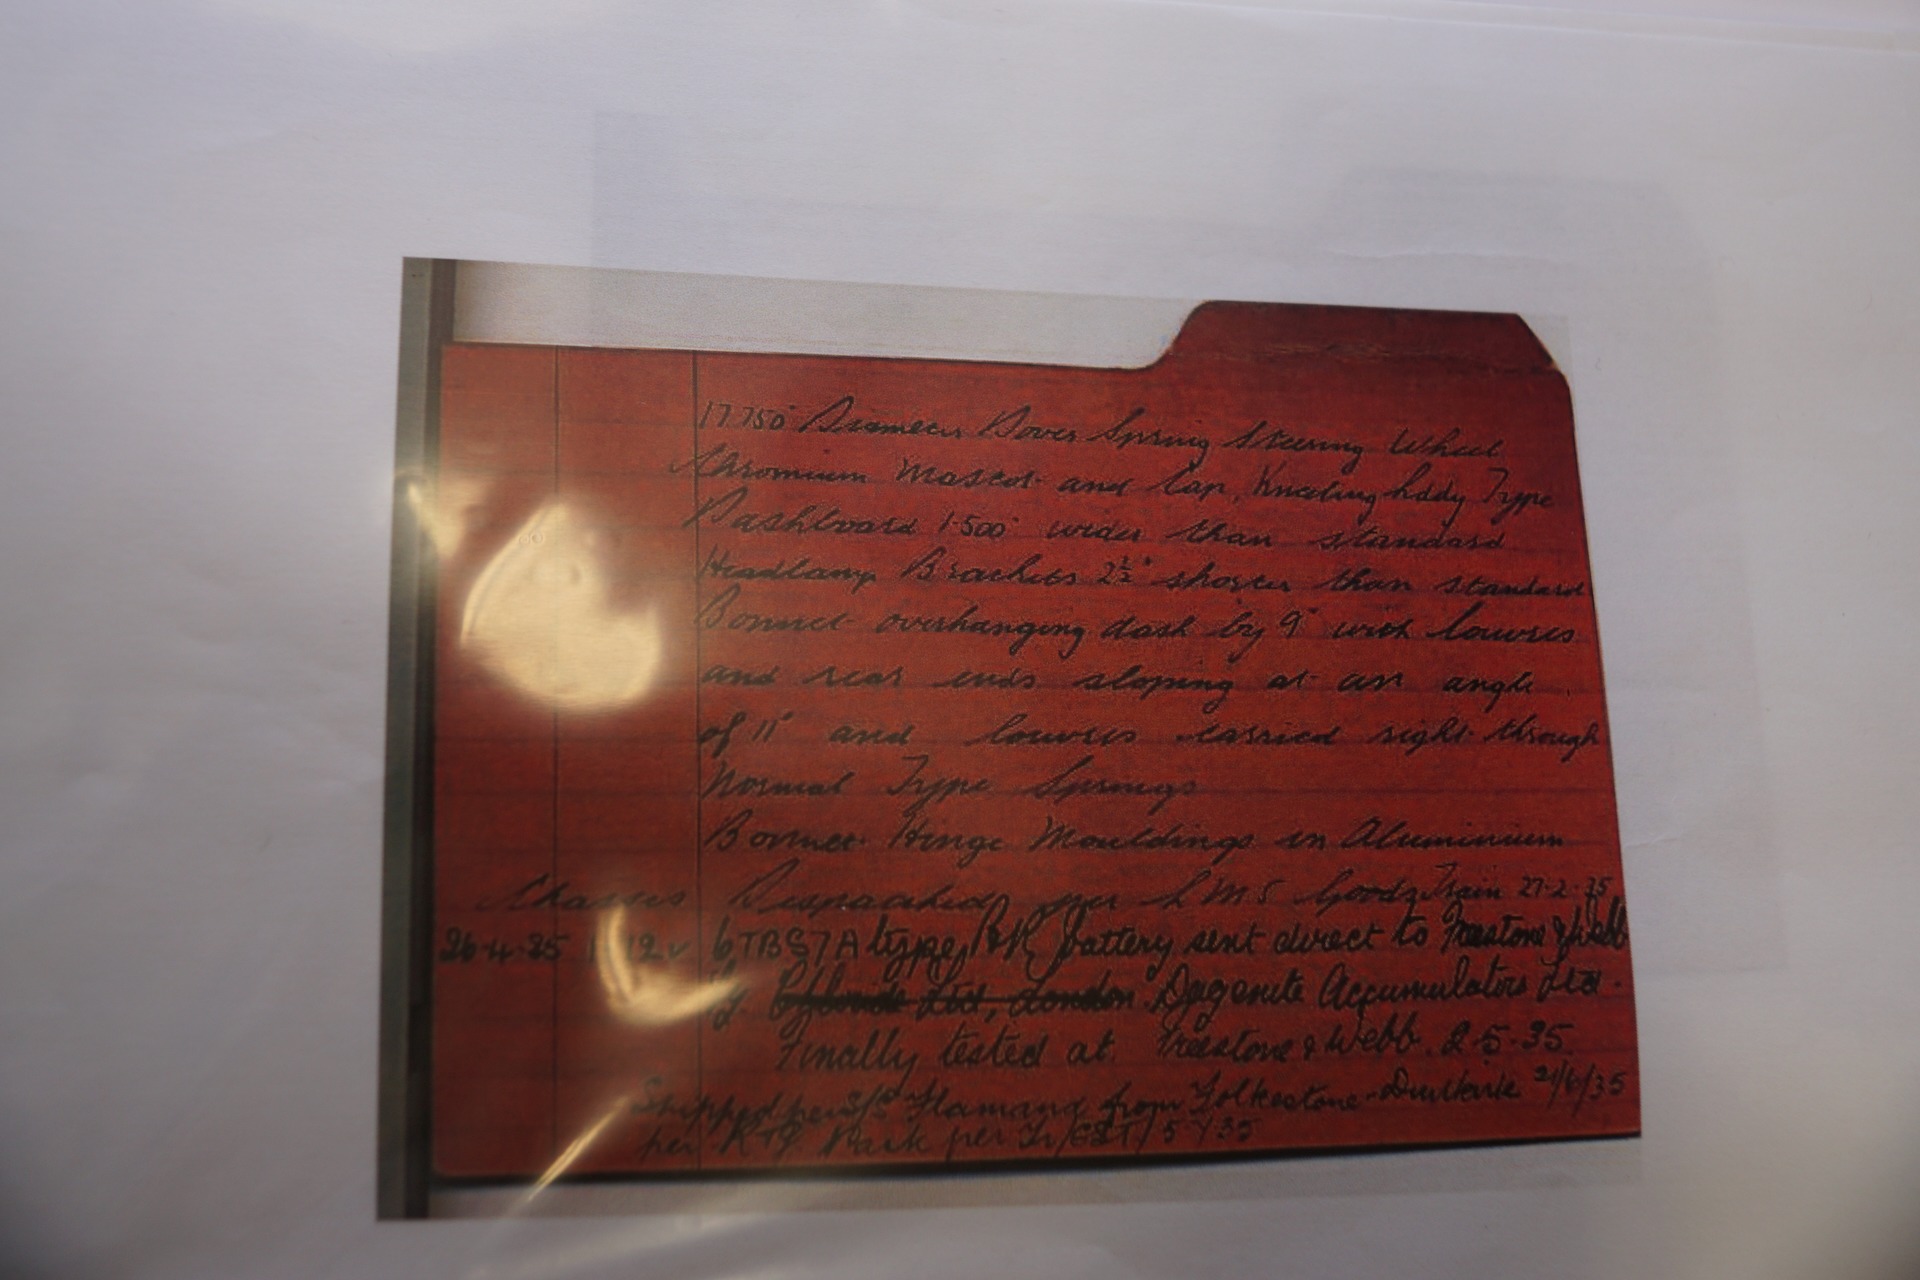 17.750" Diameter Dover Spring Steering Wheel
Chromium Mascot and Cap, Kneeling Lady Type
Dashboard 1.500" wider than standard
Headlamp Brackets 2½" shorter than standard
Bonnet overhanging dash by 9" with louvres
and rear ends sloping at an angle
of 11° and louvres carried right through
Normal Type Springs
Bonnet Hinge Mouldings in Aluminium
Chassis Despatched per L M S Goods Train 27-2-35
26-4-35 12v 6TBS7A type battery sent direct to Freestone & Webb
by Ltd, London Dagenite Accumulators Ltd.
Finally tested at Freestone & Webb. 2-5-35
Shipped per S/S Flamand from Folkestone-Dunkirk 21/6/35
per Pack per 35